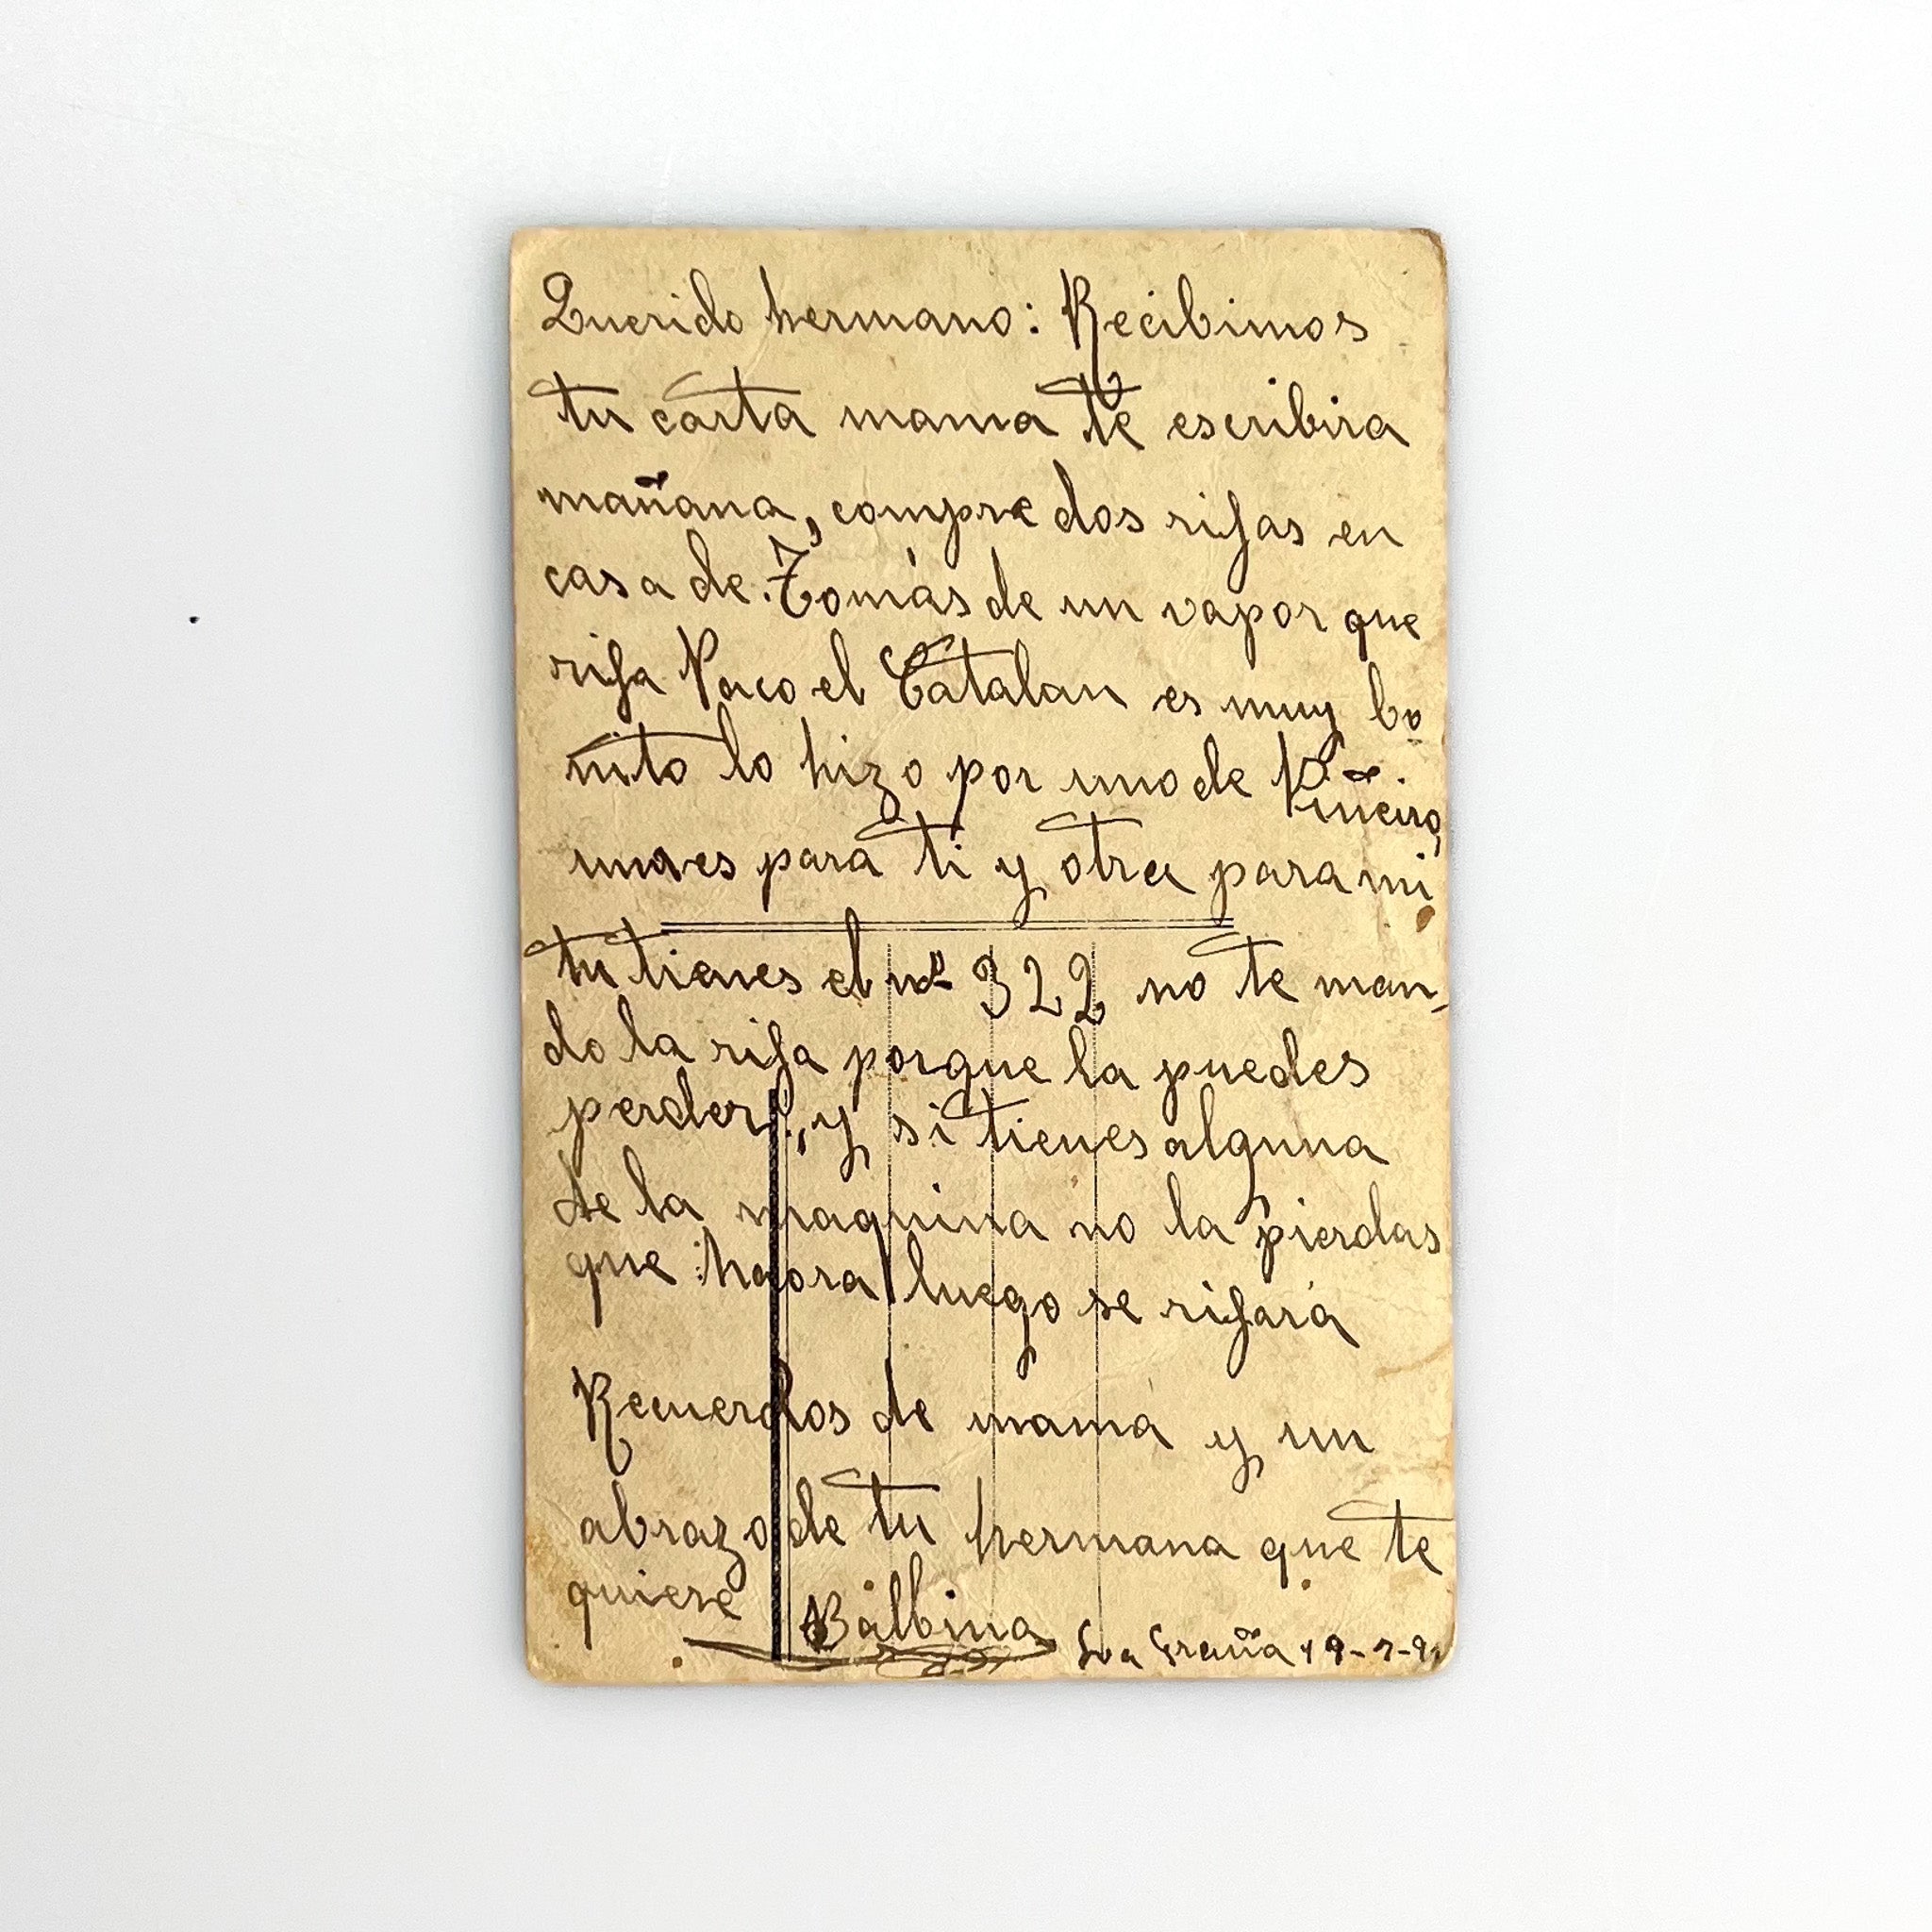 Querido hermano: Recibimos
tu carta mama te escribira
mañana, compre dos rifas en
casa de Tomás de un vapor que
rifa Paco el Catalan es muy bo
nito lo hizo por uno de Piñeiro,
una es para ti y otra para mi
tu tienes el nº 322 no te man-
do la rifa porque la puedes
perder, y si tienes alguna
de la maquina no la pierdas
que haora luego se rifará
Recuerdos de mama y un
abrazo de tu hermana que te
quiere Balbina La Graña